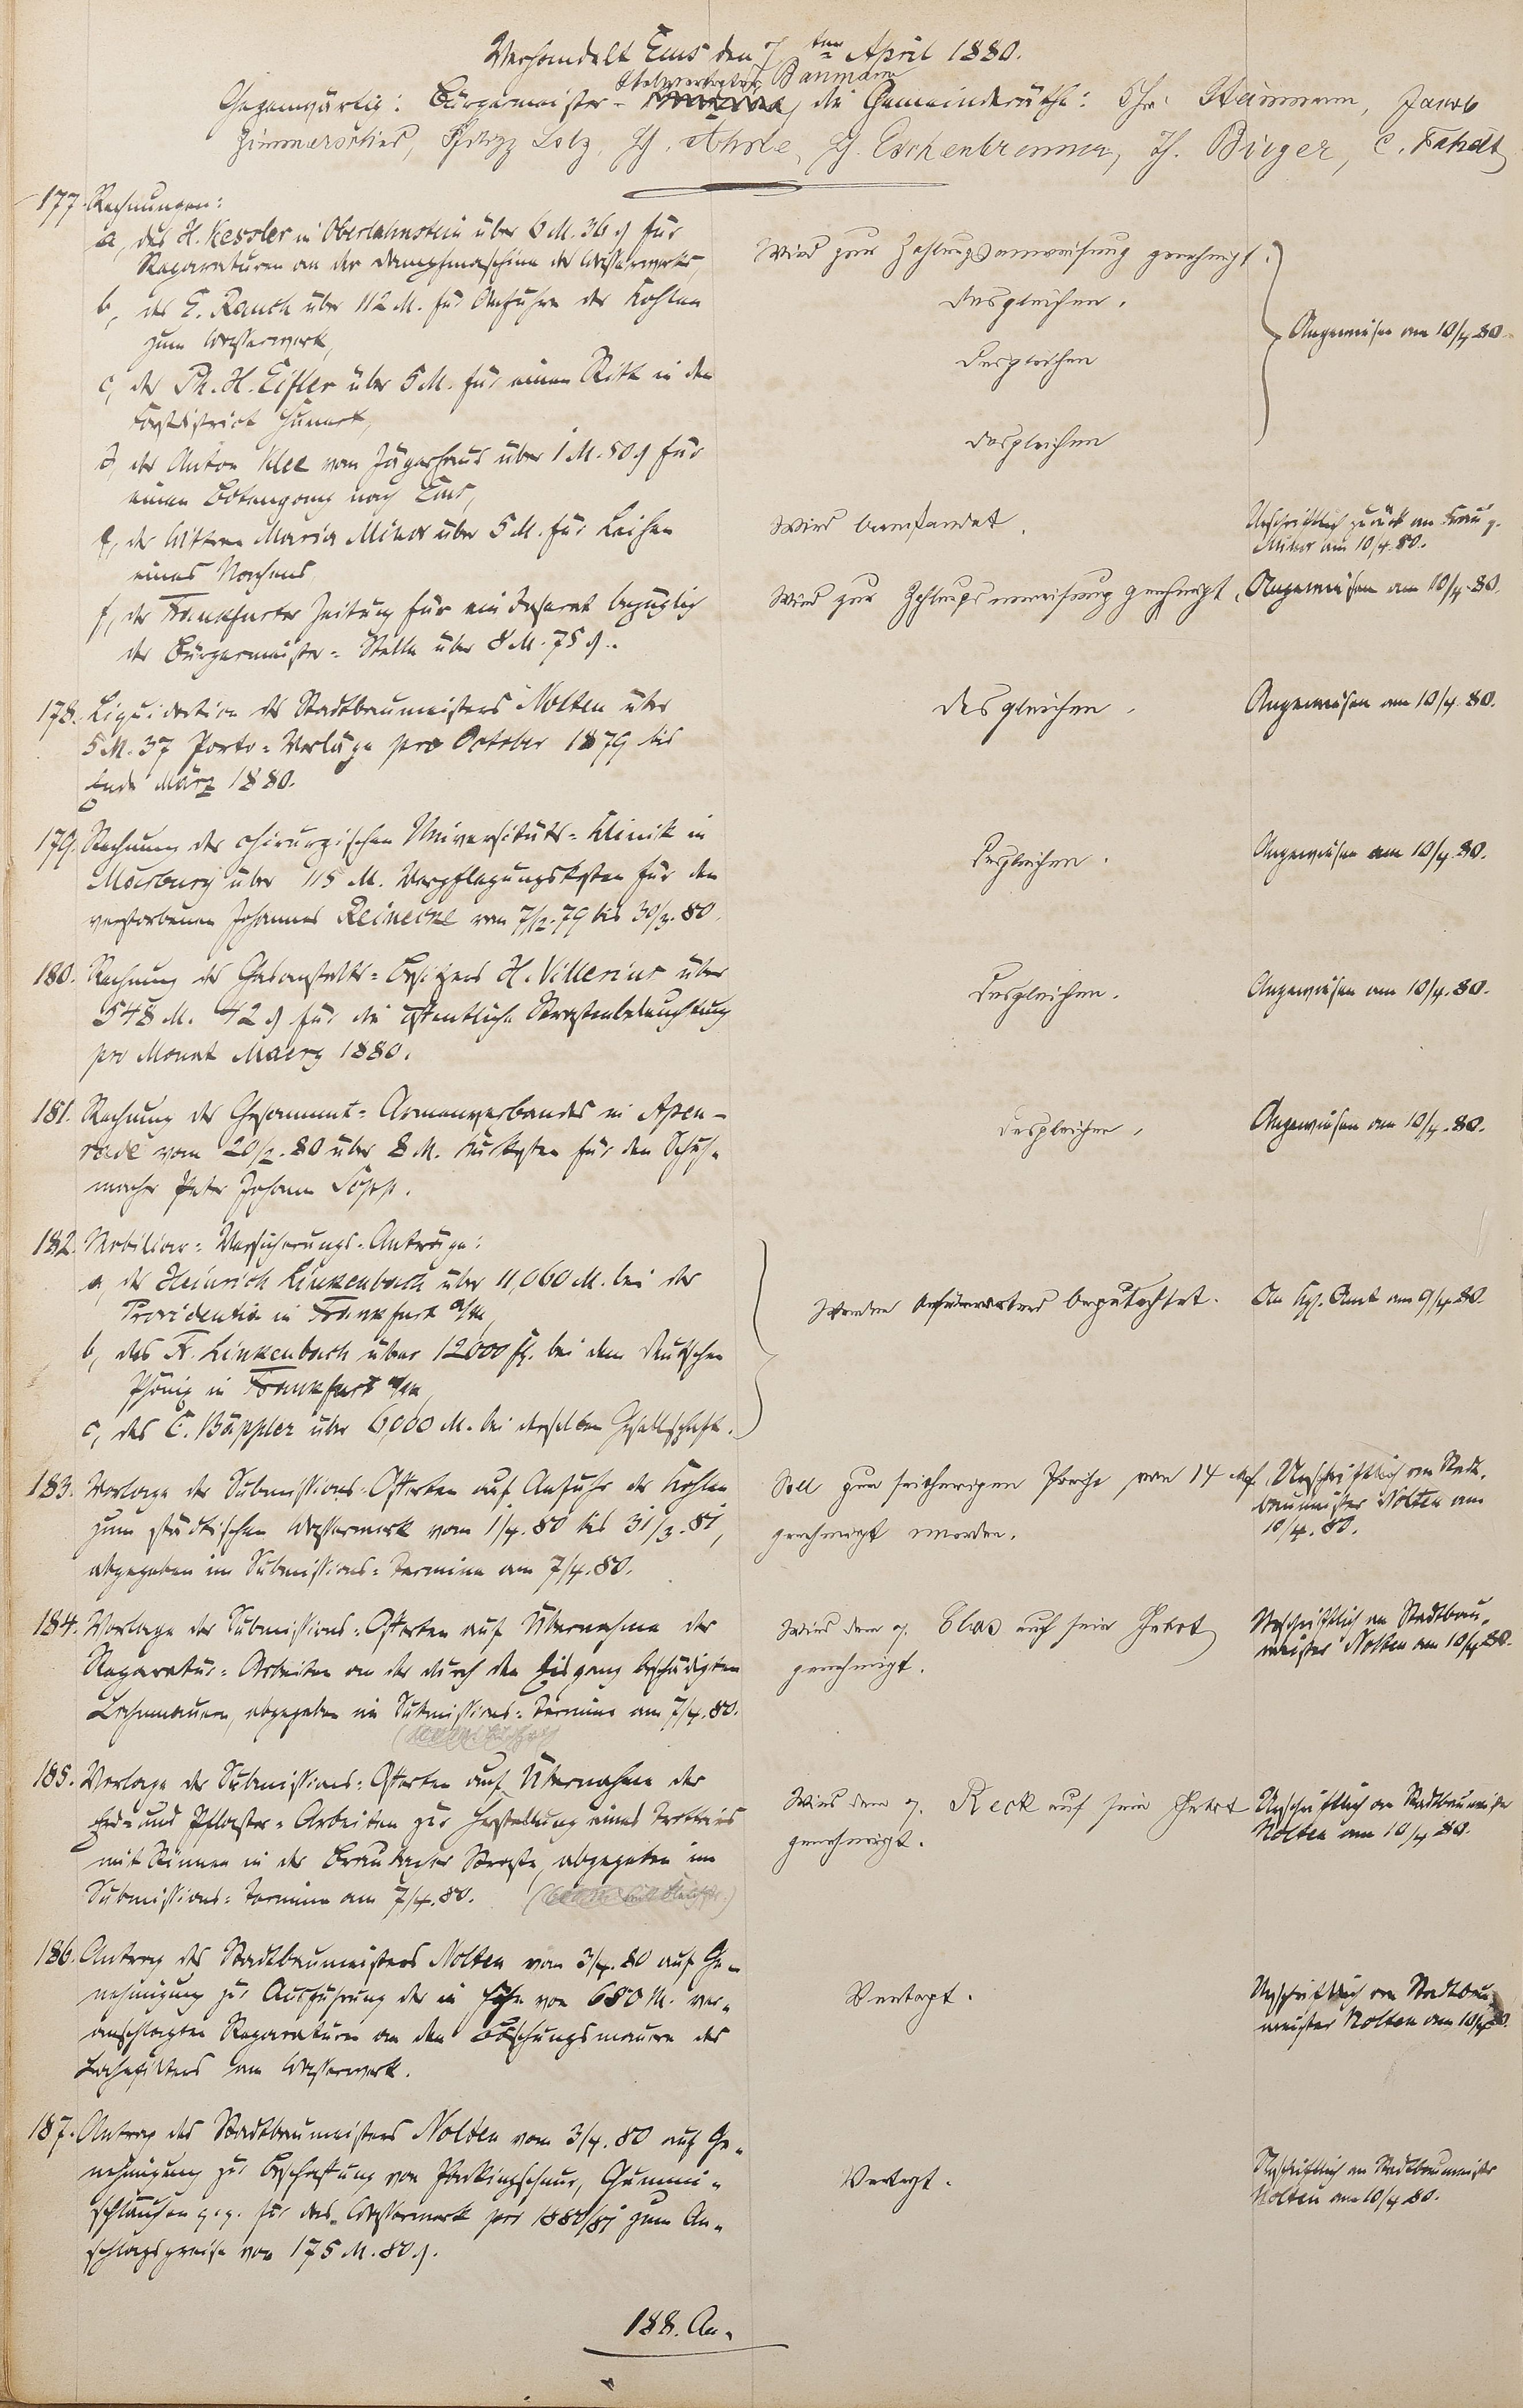 Verhandelt Ems den 7ten April 1880.
Stellvertreter Baumann
Gegenwärtig: Bürgermeister- die Gemeinderäthe: Chr. Heimann, Jacob
Zimmerschied, Lotz, H. Eschenbrenner, Th. Bieger, C. Fahdt
177. Rechnungen:
a, des H. Kessler in Oberlahnstein über 6 M. 36 ₰ für
Reparaturen an der Dampfmaschine des Wasserwerks,
Wird zur Zahlungsanweisung genehmigt.
b, des E. Rauch über 112 M. für Anfuhre der Kohlen
zum Wasserwerk,
desgleichen.
Angewiesen am 10/4 80.
c, des Ph. H. Eifler über 5 M. für einen Ritt in den
Forstdistrict
desgleichen
d, des Anton Klee vom Jägerhaus über 1 M. 50 ₰ für
einen Botengang nach Ems,
desgleichen
e, der Wittwe Maria Minor über 5 M. für Leihen
eines Nachens
Wird beanstandet.
Urschriftlich zurück an Frau
Minor am 10/4. 80.
f, der Frankfurter Zeitung für ein Inserat bezüglich
der Bürgermeister-Stelle über 8 M. 75 ₰.
Wird zur Zahlungsanweisung genehmigt.
Angewiesen am 10/4 80.
178. Liquidation des Stadtbaumeisters Nolten über
5 M. 37 Porto-Verläge pro October 1879 bis
Ende März 1880.
desgleichen.
Angewiesen am 10/4 80.
179. Rechnung der chirurgischen Universitäts-Klinik in
Marburg über 115 M. Verpflegungskosten für den
verstorbenen Johannes Reinecke vom 7/12.79 bis 30/3. 80.
Desgleichen.
Angewiesen am 10/4. 80.
180. Rechnung des Gasanstalts-Besitzers H. Villerius über
548 M. 42 ₰ für die öffentliche Straßenbeleuchtung
pro Monat Maerz 1880.
Desgleichen.
Angewiesen am 10/4. 80.
181. Rechnung des Gesammt-Armenverbandes in Apen-
rade vom 20/2. 80 über 8 M. Kurkosten für den Schuh-
macher Peter Johann Sopp.
desgleichen.
Angewiesen am 10/4. 80.
182. Mobiliar-Versicherungs-Anträge:
a, des Heinrich Linkenbach über 11,060 M. bei der
Providentia in Frankfurt a/M,
b, des Fr. Linkenbach über 12000 M. bei dem deutschen
Phönix in Frankfurt a/M,
c, des C. Bäppler über 6,000 M. bei derselben Gesellschaft.
Werden begutachtet.
An Kgl. Amt am 9/4 80.
183. Vorlage der Submissions-Offerten auf Anfuhr der Kohlen
zum städtischen Wasserwerk vom 1/4. 80 bis 31/3. 81,
abgegeben im Submissions-Termine am 7/4. 80.
Soll zum seitherigen Preise von 14
genehmigt werden.
Urschriftlich an Stadt-
baumeister Nolten am
10/4. 80.
184. Vorlage der Submissions-Offerten auf Übernahme der
Reparatur-Arbeiten an der durch den Eisgang beschädigten
Lahnmauern, abgegeben im Submissions-Termine am 7/4. 80.
Wird dem p. Elas auf sein Gebot
genehmigt.
Urschriftlich an Stadtbau-
meister Nolten am 10/4 80.
185. Vorlage der Submissions-Offerten auf Übernahme der
Erd- und Pflaster-Arbeiten zur Herstellung eines Trottoirs
mit Rinnen in der Braubacher Straße, abgegeben im
Submissions-Termine am 7/4. 80.
Wird dem p. Reck auf sein Gebot
genehmigt.
Urschriftlich an Stadtbaumeister
Nolten am 10/4 80.
186. Antrag des Stadtbaumeisters Nolten vom 3/4. 80 auf Ge-
nehmigung zur Ausführung der in Höhe von 680 M. ver-
anschlagten Reparaturen an den Böschungsmauern des
Lahnfilters am Wasserwerk.
Vertagt.
Urschriftlich an Stadtbau-
meister Nolten am 10/4 80.
187. Antrag des Stadtbaumeisters Nolten vom 3/4. 80 auf Ge-
nehmigung zur Beschaffung von Packingschnur, Gummi-
schläuchen p.p. für das Wasserwerk pro 1880/81 zum An-
schlagspreise von 175 M. 80 ₰.
Vertagt.
Urschriftlich an Stadtbaumeister
Nolten am 10/4 80.
188. An-